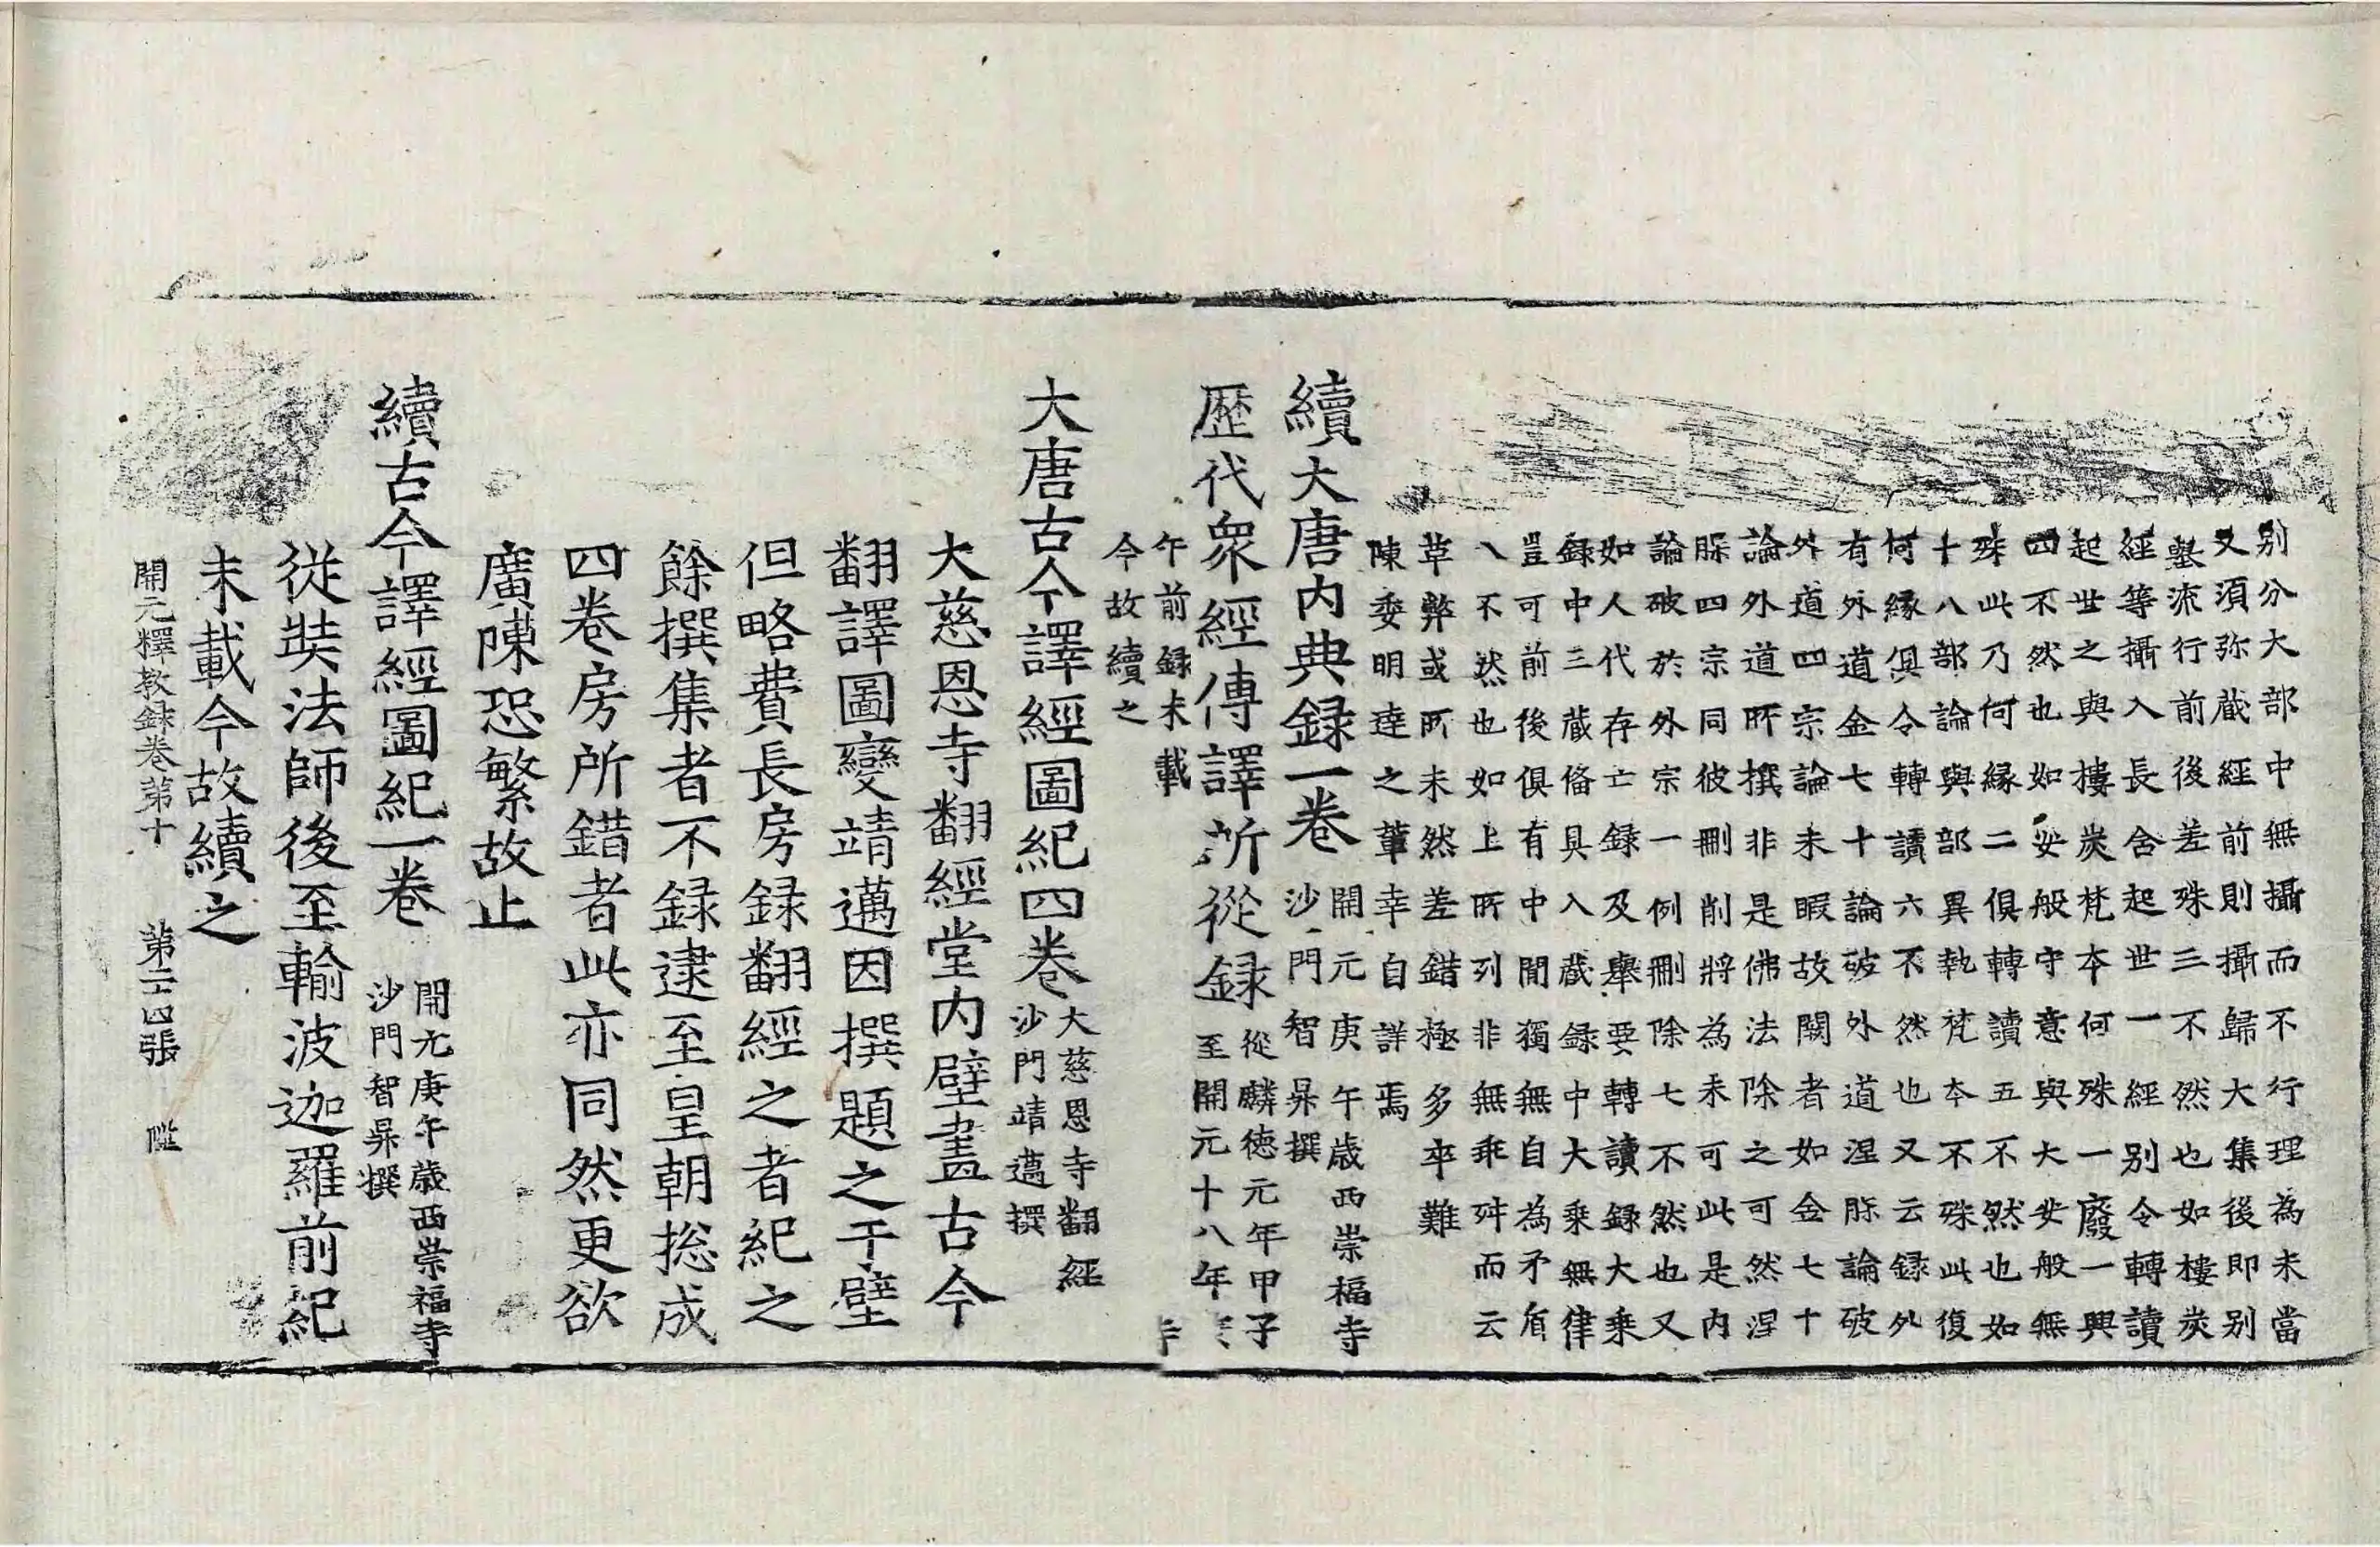 別分大部中無攝而不行理為未當
又須弥藏經前則攝歸大集後即別
鏧流行前後差殊三不然也如樓炭
經等攝入長含起世一經別令轉讀
起世之與樓炭梵本何殊一廢一興
四不然也如安般守意與大安般無
殊此乃何緣二俱轉讀五不然也如
十八部論與部異執梵本不殊此復
何緣俱令轉讀六不然也又云録外
有外道金七十論破外道涅槃論破
外道四宗論未暇故闕者如金七十
論外道所撰非是佛法除之可然涅
脲四宗同彼刪削將為未可此是内
論破於外宗一例刪除七不然也又
如人代存亡録及舉要轉讀録大乘
録中三藏俻具入藏録中大乘無律
豈可前後俱有中間獨無自為矛盾
八不然也如上所列非無乖舛而云
革弊或所未然差錯極多卒難
陳委明達之輩幸自詳焉
續大唐内典録一卷
開元庚午歲西崇福寺
沙門智昇撰
歷代衆經傳譯所從録
從麟徳元年甲子
至開元十八年
午前録未載
今故續之
大唐古今譯經圖紀四卷
大慈恩寺翻經
沙門靖邁撰
大慈恩寺翻經堂内壁畫古今
翻譯圖變靖邁因撰題之于壁
但略費長房録翻經之者紀之
餘撰集者不録逮至皇朝揔成
四卷房所錯者此亦同然更欲
廣陳恐繁故止
續古今譯經圖紀一卷
開元庚午歲西崇福寺
沙門智昇撰
從奘法師後至輸波迦羅前紀
未載今故續之
開元釋教録卷第十 第二十四張 陛